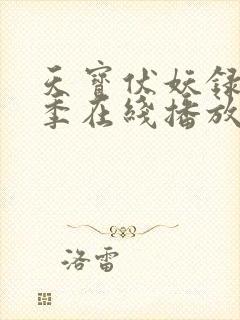 天寶伏妖録
季在綫播放
洛雷